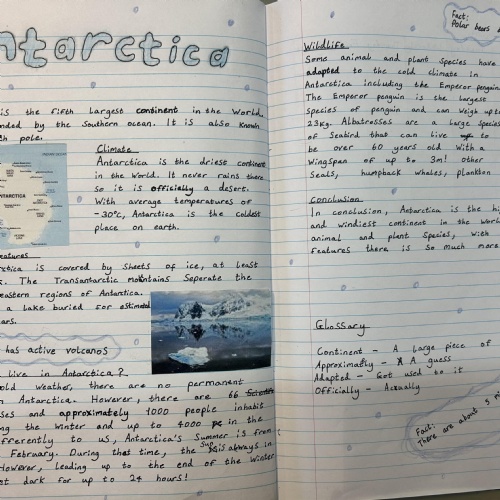 ntarctica
is the fifth largest continent in the World,
nded by the Southern ocean. It is also known
h pole.
Climate
Antarctica is the driest continent
in the World. It never rains there
so it is officially a desert.
With average temperatures of
-30°C, Antarctica is the coldest
place on earth.
ANTARCTICA
eatures
rctica is covered by sheets of ice, at least
s. The Transantarctic mountains Seperate the
eastern regions of Antarctica.
a lake buried for estimated
ears.
has active volcanos
live in Antarctica?
old weather, there are no permanent
n Antarctica. However, there are 66
ses and approximately 1000 people inhabit
ng the winter and up to 4000 in the
fferently to us, Antarctica's Summer is from
February. During that time, the sun is always in
However, leading up to the end of the Winter
st dark for up to 24 hours!
Fact:
Polar bears
Wildlife
Some animal and plant species have
adapted to the cold climate in
Antarctica including the Emperor penguin
The Emperor penguin is the largest
species of penguin and can weigh upto
23kg. Albatrosses are a large species
of Seabird that can live to
be over 60 years old with a
Wingspan of up to 3m! other
Seals, humpback whales, plankton
Conclusion
In conclusion, Antarctica is the hi
and windiest continent in the World
animal and plant species, with
features there is so much more
Glossary
Continent - A large piece of
Approximatly - A guess
Adapted - Got used to it
Officially - Actually
Fact:
There are about 5 mi